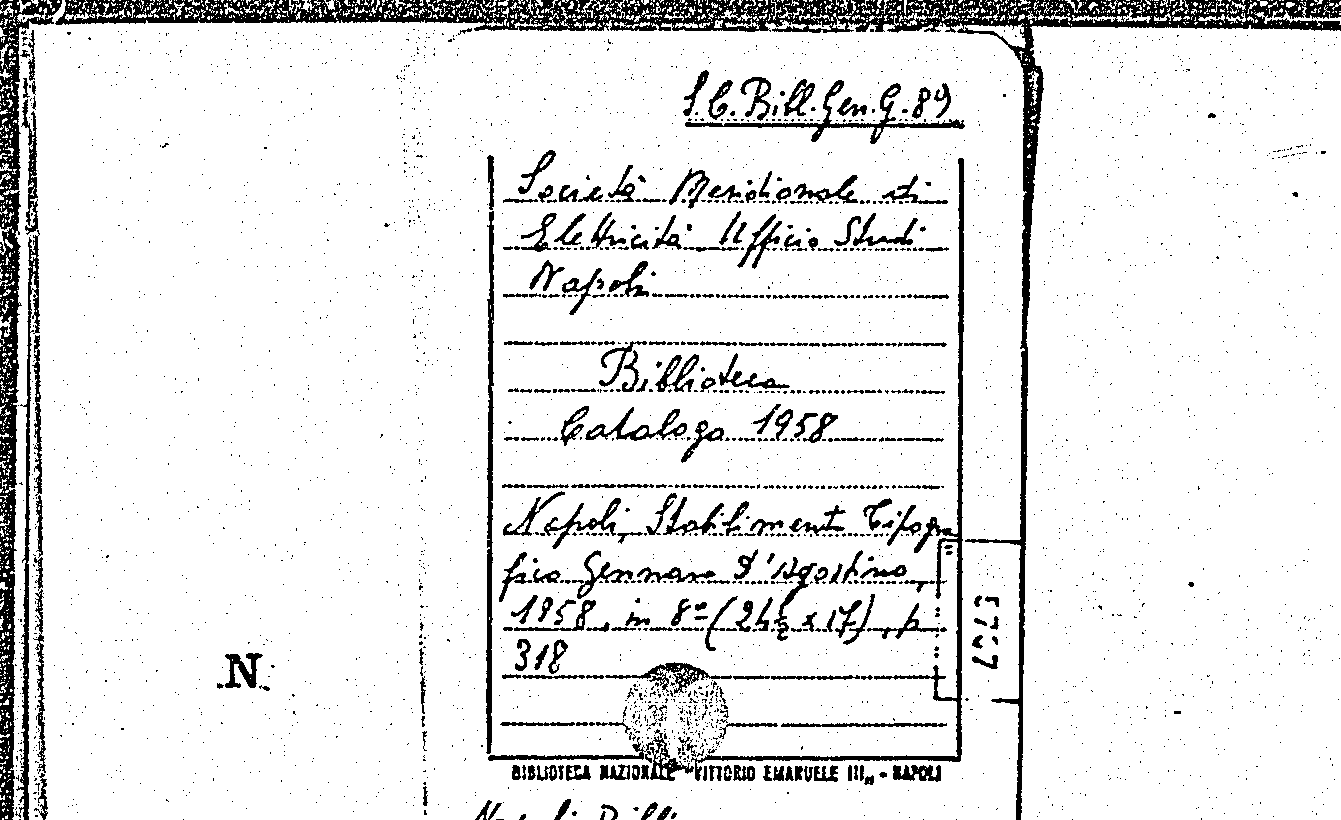 S.C. Bibl. Gen. G. 89
Società Meridionale di
Elettricità Ufficio Studi
Napoli
Biblioteca
Catalogo 1958
Napoli, Stabilimento Tipogra
fico Gennaro D'Agostino,
1958, in 8º (24½ x 17), p
318
N
BIBLIOTECA NAZIONALE "VITTORIO EMANUELE III„ - NAPOLI